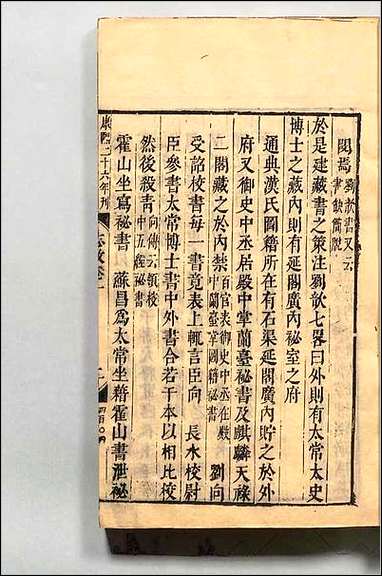 閣焉 劉歆書又云
書缺簡脫
於是建藏書之策注劉歆七畧曰外則有太常太史
博士之藏內則有延閣廣內祕室之府
通典漢氏圖籍所在有石渠延閣廣內貯之於外
府又御史中丞居殿中掌蘭臺祕書及麒麟天祿
二閣藏之於內禁 百官表御史中丞在殿
中蘭臺掌圖籍祕書 劉向
受詔校書每一書竟表上輒言臣向 長水校尉
臣參書太常博士書中外書合若干本以相比校
然後殺青 向傳云領校
中五經祕書
霍山坐寫祕書 蘇昌為太常坐藉霍山書泄祕
十六年刊